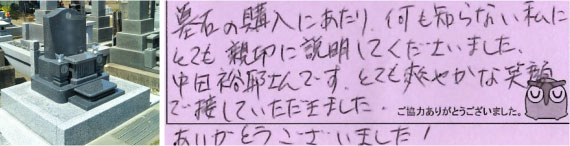 墓石の購入にあたり、何も知らない私に
とても親切に説明してくださいました。
中田裕耶さんです。とても爽やかな笑顔
で接していただきました。
ご協力ありがとうございました。
ありがとうございました!